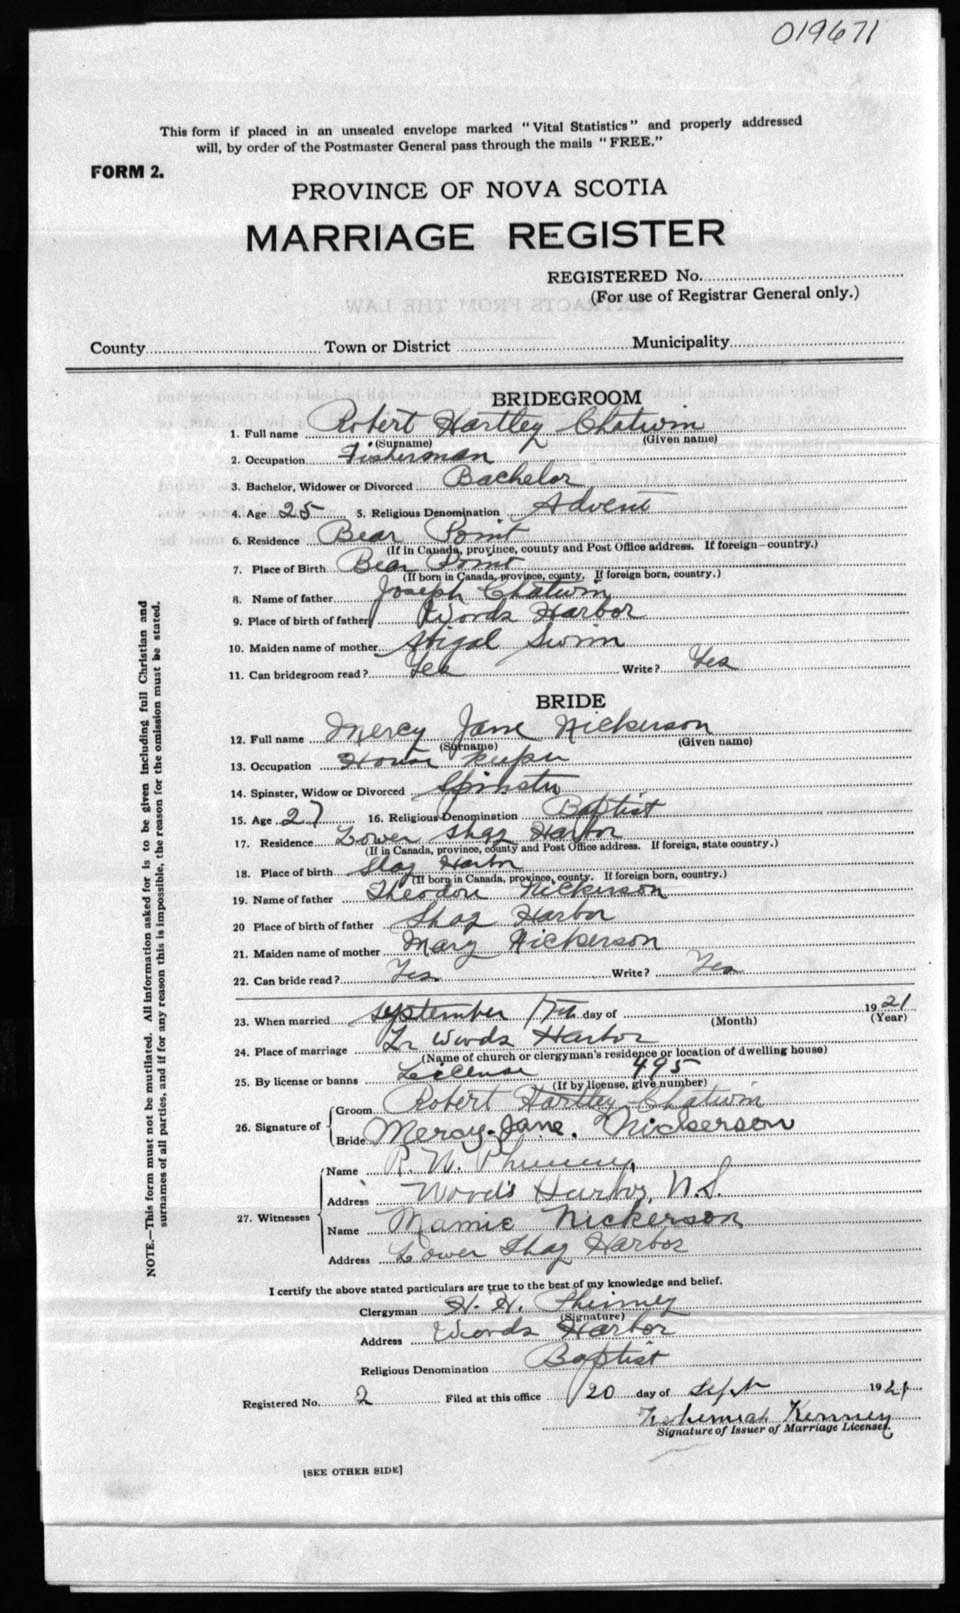 019671
This form if placed in an unsealed envelope marked "Vital Statistics" and properly addressed
will, by order of the Postmaster General pass through the mails "FREE."
FORM 2.
PROVINCE OF NOVA SCOTIA
MARRIAGE REGISTER
REGISTERED No.
(For use of Registrar General only.)
County Town or District Municipality
BRIDEGROOM
1. Full name Robert Hartley Chatwin
(Surname) (Given name)
2. Occupation Fisherman
3. Bachelor, Widower or Divorced Bachelor
4. Age 25 5. Religious Denomination Advent
6. Residence Bear Point
(If in Canada, province, county and Post Office address. If foreign—country.)
7. Place of Birth Bear Point
(If born in Canada, province, county. If foreign born, country.)
8. Name of father Joseph Chatwin
9. Place of birth of father Woods Harbor
10. Maiden name of mother Swim
11. Can bridegroom read? Yes Write? Yes
BRIDE
12. Full name Mercy Jane Nickerson
(Surname) (Given name)
13. Occupation House keeper
14. Spinster, Widow or Divorced Spinster
15. Age 27 16. Religious Denomination Baptist
17. Residence Lower Shag Harbor
(If in Canada, province, county and Post Office address. If foreign, state country.)
18. Place of birth Shag Harbor
(If born in Canada, province, county. If foreign born, country.)
19. Name of father Theodore Nickerson
20 Place of birth of father Shag Harbor
21. Maiden name of mother Mary Nickerson
22. Can bride read? Yes Write? Yes
23. When married September 17th day of 1921
(Month) (Year)
24. Place of marriage Lr Woods Harbor
(Name of church or clergyman's residence or location of dwelling house)
25. By license or banns License 495
(If by license, give number)
26. Signature of Groom Robert Hartley Chatwin
Bride Mercy Jane. Nickerson
27. Witnesses Name R. W.
Address Wood's Harbor, N.S.
Name Mamie Nickerson
Address Lower Shag Harbor
I certify the above stated particulars are true to the best of my knowledge and belief.
Clergyman H. H.
(Signature)
Address Woods Harbor
Religious Denomination Baptist
Registered No. 2 Filed at this office 20 day of Sept 1921
Nehemiah Kenney
Signature of Issuer of Marriage Licenses.
[SEE OTHER SIDE]
NOTE.—This form must not be mutilated. All information asked for is to be given including full Christian and
surnames of all parties, and if for any reason this is impossible, the reason for the omission must be stated.